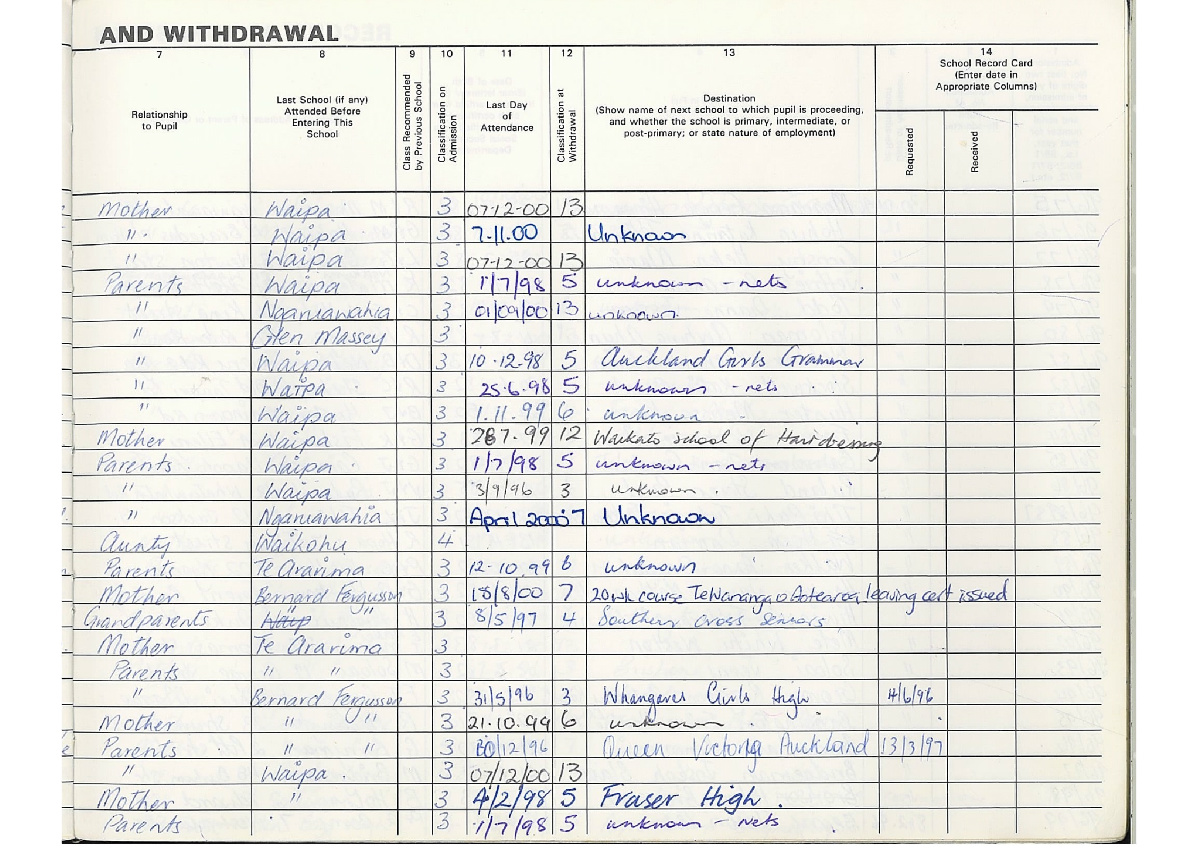 AND WITHDRAWAL
7 8 9 10 11 12 13 14
Relationship to Pupil
Last School (if any) Attended Before Entering This School
Class Recommended by Previous School
Classification on Admission
Last Day of Attendance
Classification at Withdrawal
Destination
(Show name of next school to which pupil is proceeding, and whether the school is primary, intermediate, or post-primary; or state nature of employment)
School Record Card
(Enter date in Appropriate Columns)
Requested
Received
Mother Waipa 3 07-12-00 13
" Waipa 3 7.11.00 Unknown
" Waipa 3 07-12-00 13
Parents Waipa 3 1/7/98 5 unknown - nets
" Ngaruawahia 3 01/09/00 13 unknown.
" Glen Massey 3
" Waipa 3 10.12.98 5 Auckland Girls Grammar
" Waipa 3 25.6.98 5 unknown - nets
" Waipa 3 1.11.99 6 unknown
Mother Waipa 3 287.99 12 Waikato school of Hairdressing
Parents Waipa 3 1/7/98 5 unknown - nets
" Waipa 3 3/9/96 3 unknown.
" Ngaruawahia 3 April 2000 7 Unknown
Aunty Waikohu 4
Parents Te Ararima 3 12-10.99 6 unknown
Mother Bernard Fergusson 3 18/8/00 7 20wk course TeWananga o Aotearoa, leaving cert issued
Grandparents " 3 8/5/97 4 Southern Cross Seniors
Mother Te Ararima 3
Parents " " 3
" Bernard Fergusson 3 31/5/96 3 Whangarei Girls High 4/6/96
Mother " " 3 21.10.99 6 unknown.
Parents " " 3 /12/96 Queen Victoria Auckland 13/3/97
" Waipa 3 07/12/00 13
Mother " 3 4/2/98 5 Fraser High.
Parents 3 1/7/98 5 unknown - nets